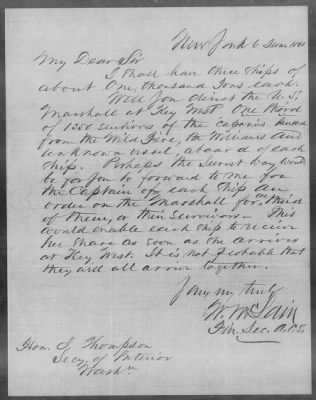 New York 6 June 1860
My Dear Sir
I shall have three ships of
about One thousand Tons each.
Will you direct the U.S.
Marshall at Key West One third
of 1250 survivors of the cargoes landed
from the Wild Fire, the Williams and
unknown vessel, aboard of each
ship. Perhaps the surest way would
be for you to forward to me for
the Captain of each ship an
order on the Marshall for one third
of them, or their survivors. This
would enable each ship to receive
her share as soon as she arrives
at Key West. It is not probable that
they will all arrive together.
Yours very truly
W. McLain
Fin. Sec. A.C.S.
Hon. J. Thompson
Secy of Interior
Washn